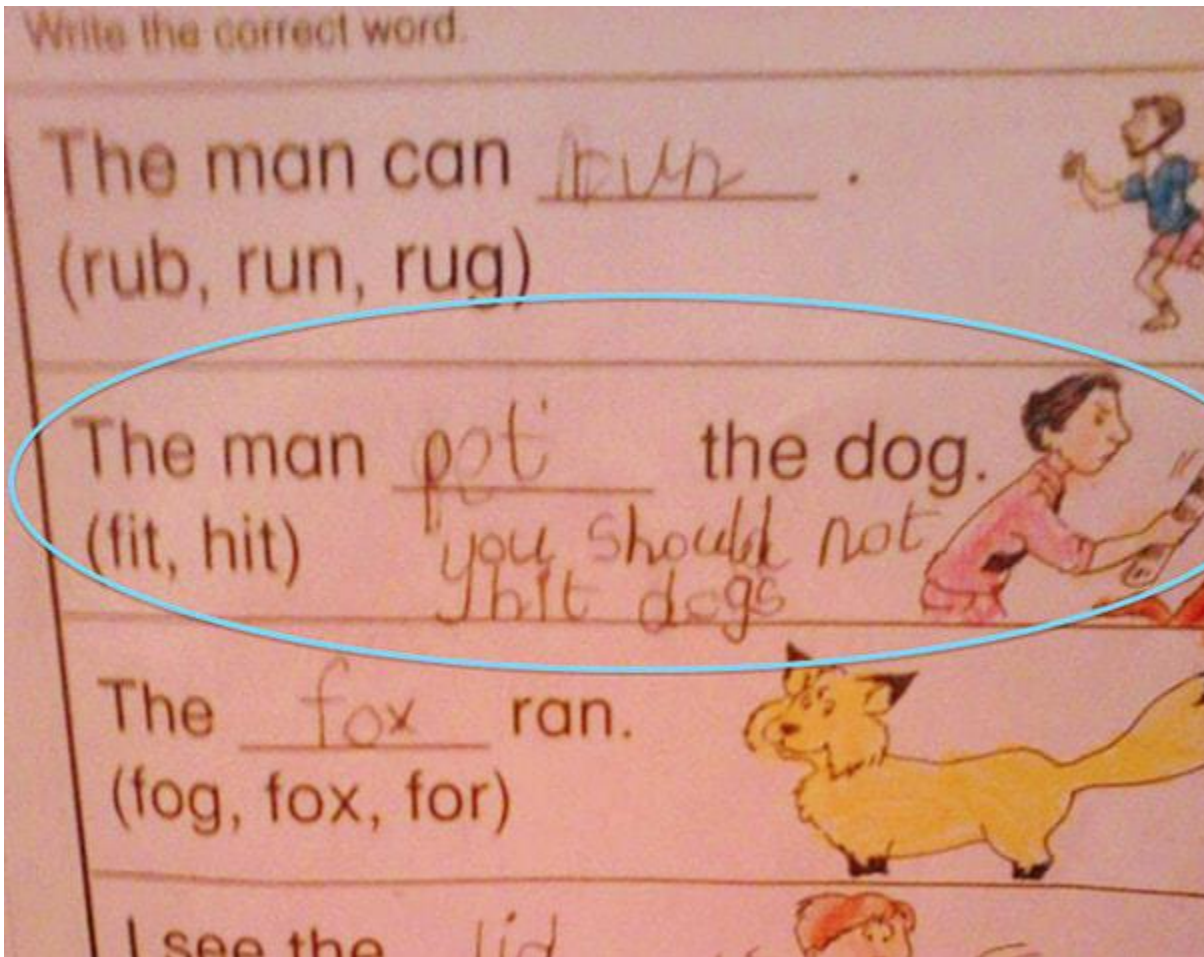 Write the correct word.
The man can run .
(rub, run, rug)
The man pat the dog.
(fit, hit) you should not
hit dogs
The fox ran.
(fog, fox, for)
I see the lid